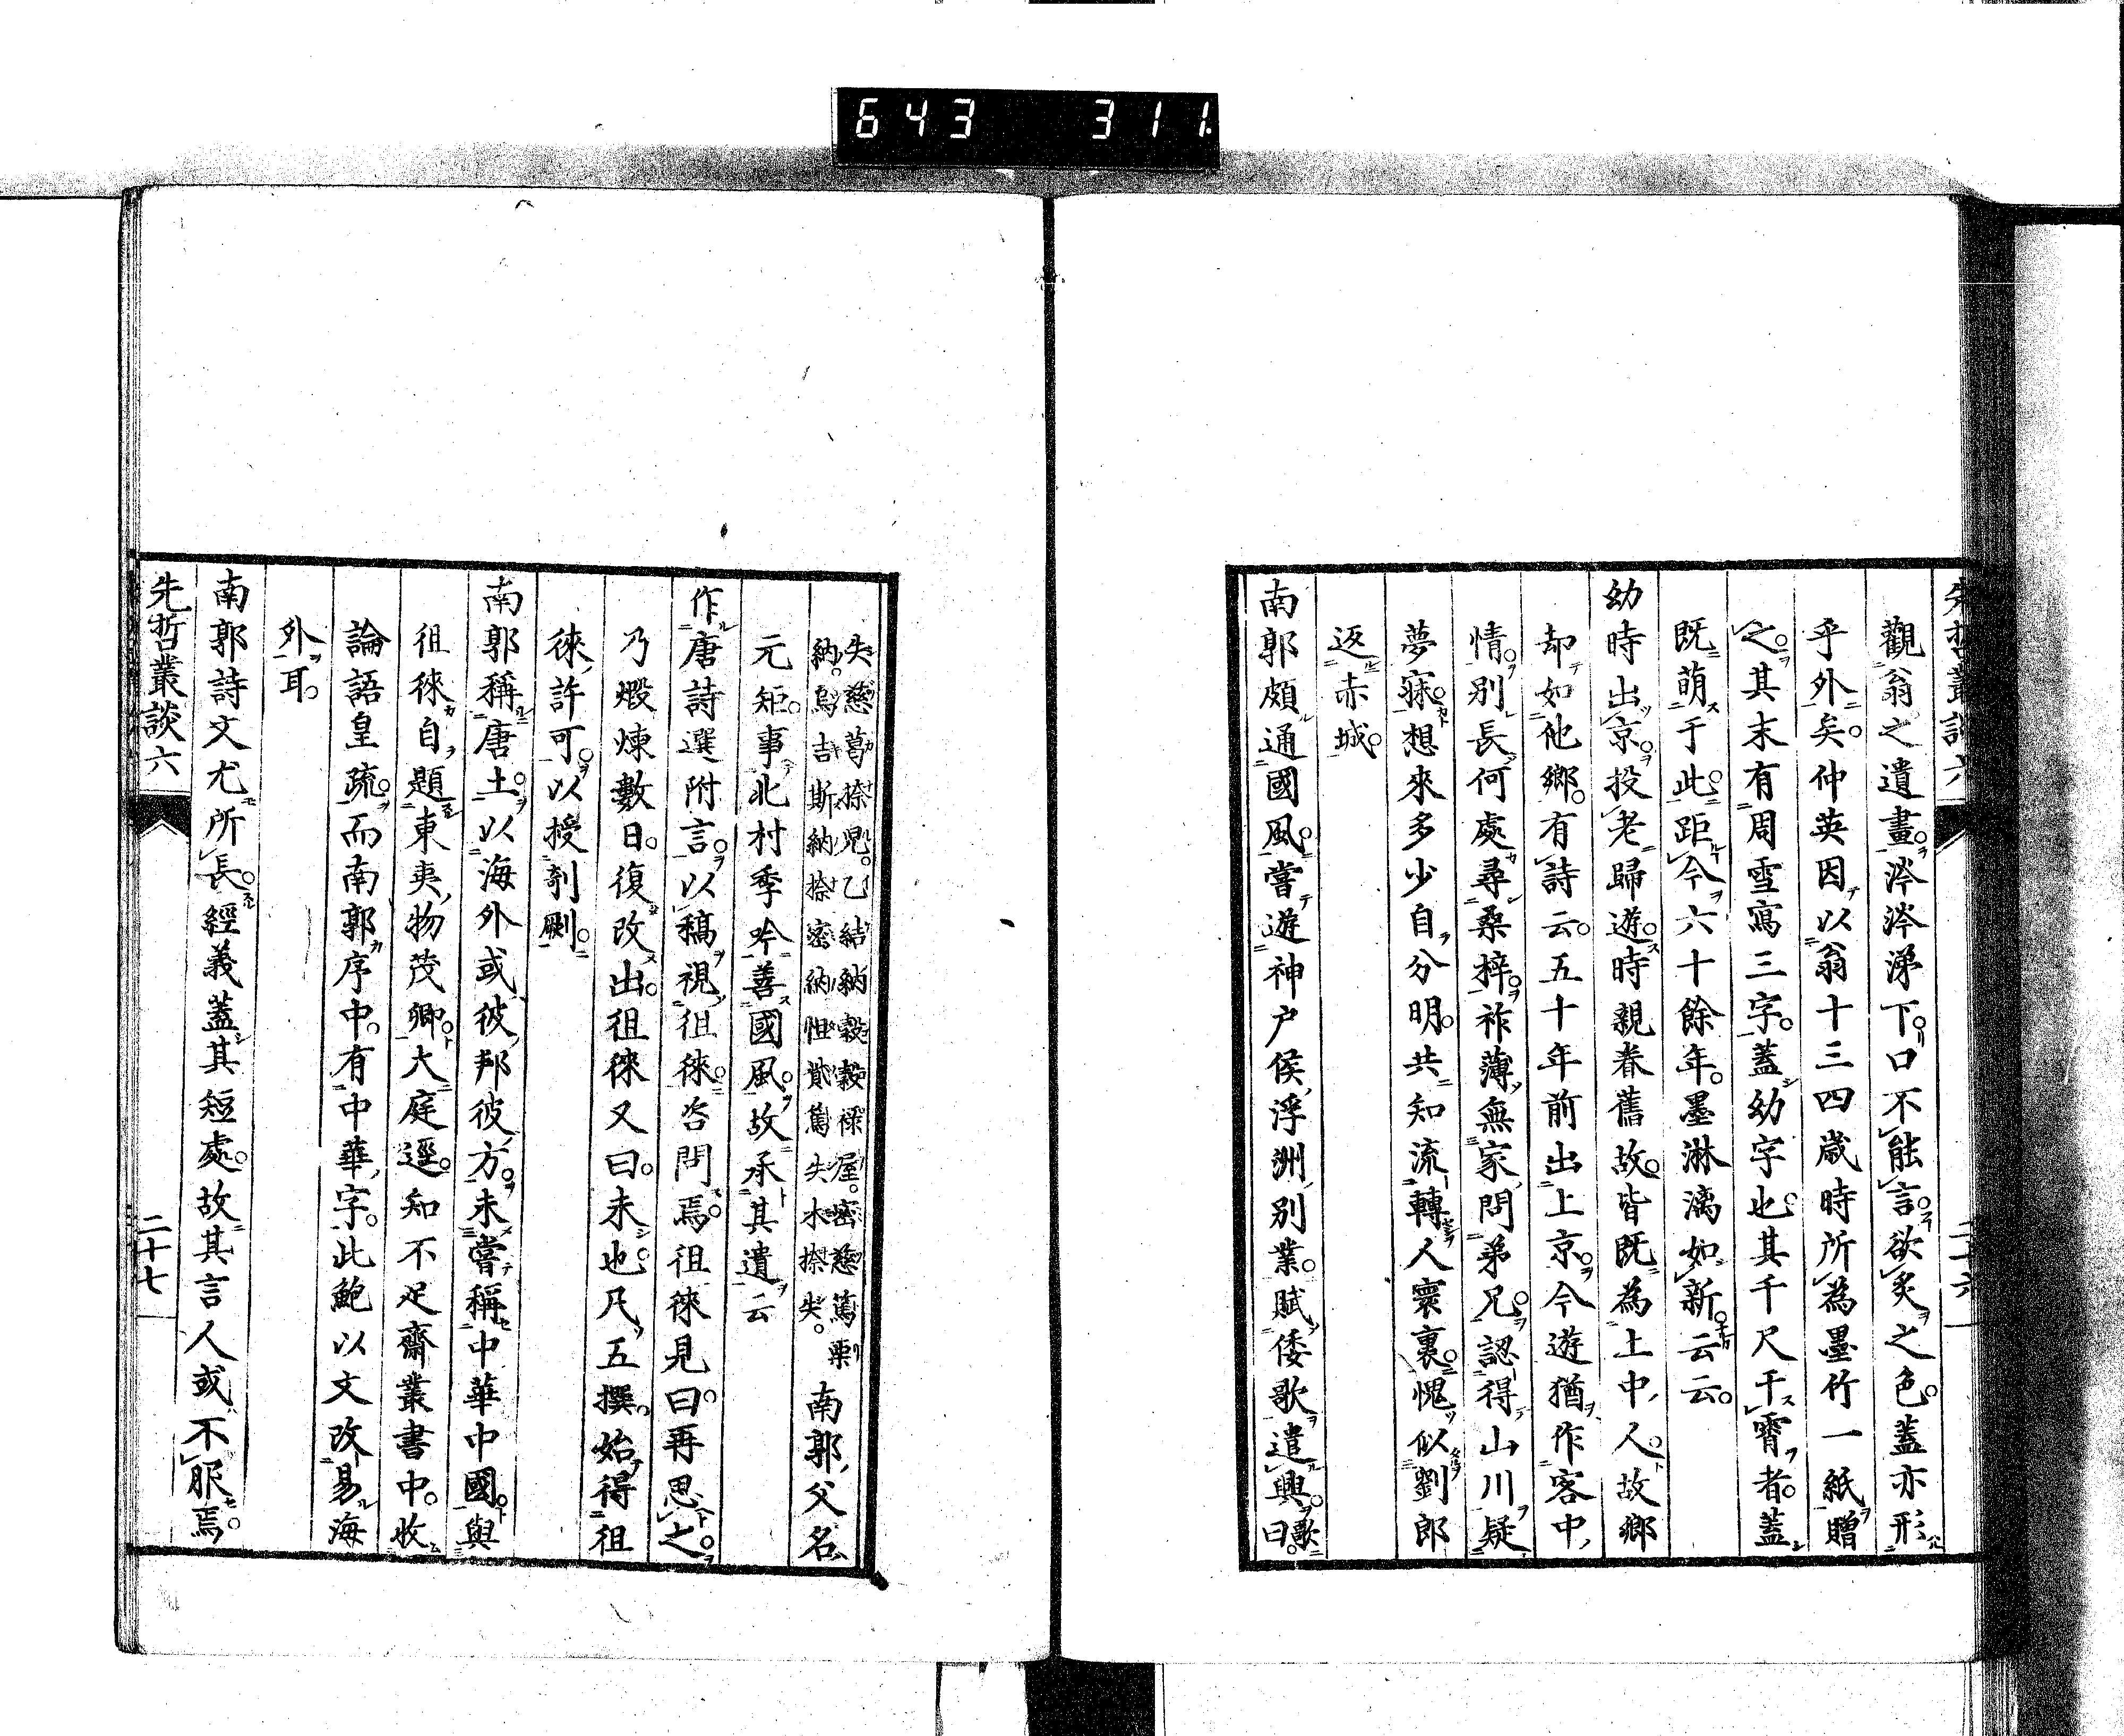 643 311
先哲叢談六
二十六
觀翁之遺畫。涔涔涕下。口不能言。欲炙之色。蓋亦形
乎外矣。仲英因以翁十三四歲時所為墨竹一紙贈
之。其末有周雪寫三字。蓋幼字也。其千尺干霄者。蓋
既萌于此。距今六十餘年。墨淋漓如新。云云。
幼時出京。投老歸遊。時親眷舊故。皆既為上中人。故鄉
却如他鄉。有詩云。五十年前出上京。今遊猶作客中
情。別長何處尋桑梓。祚薄無家問弟兄。認得山川疑
夢寐。想來多少自分明。共知流轉人寰裏。愧似劉郎
返赤城。
南郭頗通國風。嘗遊神戶侯浮洲別業。賦倭歌遣興。歌曰。
失慈葛捺兒。乙結納穀穀祿屋。密慈篤栗
納。烏吉斯納捺密納怛貲篤失木捺失。南郭父名
元矩。事北村季吟。善國風。故承其遺云
作唐詩選附言。以稿視徂徠。咨問焉。徂徠見曰。再思之。
乃煅煉數日。復改出。徂徠又曰。未也。凡五撰。始得徂
徠許可。以授剞劂。
南郭稱唐土。以海外或彼邦彼方。未嘗稱中華中國。與
徂徠自題東夷物茂卿。大庭逕。知不足齋叢書中。收
論語皇疏。而南郭序中。有中華字。此鮑以文改易海
外耳。
南郭詩文尤所長。經義蓋其短處。故其言人或不服焉。
先哲叢談六
二十七